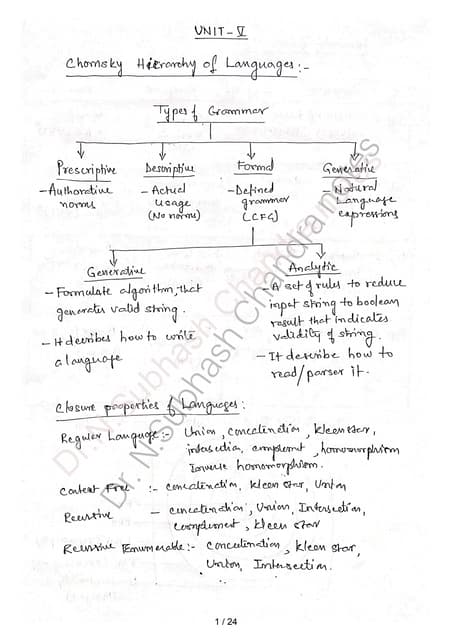 UNIT-V
Chomsky Hierarchy of Languages:-
Types of Grammer
Prescriptive Descriptive Formal Generative
- Authorative norms
- Actual usage (No norms)
- Defined grammer (CFG)
- Natural Language expressions
Generative
- Formulate algorithm, that
generates valid string.
- It describes how to write
a language
Analytic
- A set of rules to reduce
input string to boolean
result that indicates
validity of string.
- It describe how to
read/parser it.
Closure properties of Languages:
Regular Language:- Union, concatination, Kleen star,
intersection, complement, homomorphism
Inverse homomorphism.
Context Free :- concatination, Kleen star, Union
Recursive - concatination, Union, Intersection,
complement, Kleen star
Recursive Enumerable:- concatination, Kleen star,
Union, Intersection.
Dr. N.Subhash Chandra notes
Dr. N.Subhash Chandra notes
1 / 24